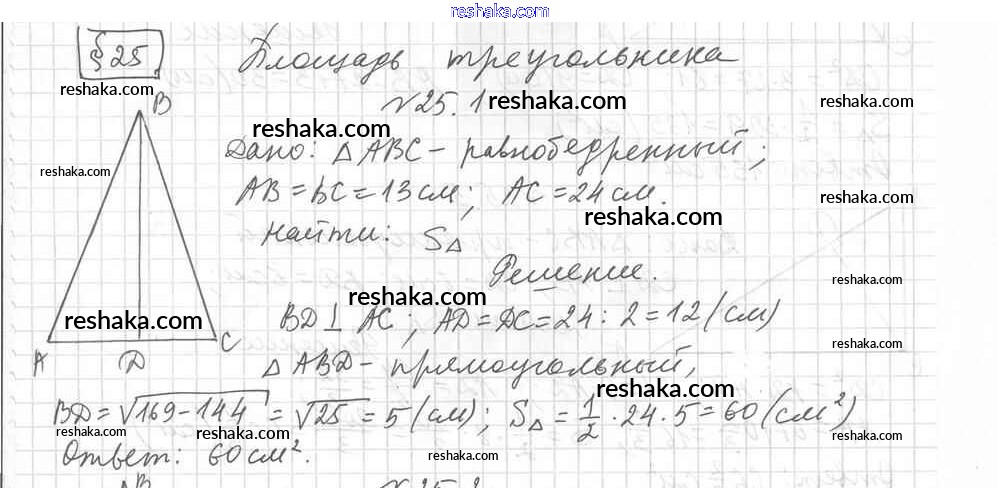 reshaka.com
§ 25 Площадь треугольника
reshaka.com
№25.1 reshaka.com reshaka.com
B
reshaka.com
Дано: △ABC - равнобедренный;
reshaka.com
AB = BC = 13 см; AC = 24 см.
reshaka.com
reshaka.com
Найти: S△
Решение.
reshaka.com
reshaka.com
BD ⊥ AC; AD = DC = 24 : 2 = 12 (см)
reshaka.com
A D C
reshaka.com
△ABD - прямоугольный,
reshaka.com
BD = √169-144 = √25 = 5 (см); S△ = 1/2 · 24 · 5 = 60 (см²)
reshaka.com reshaka.com reshaka.com
Ответ: 60 см².
reshaka.com